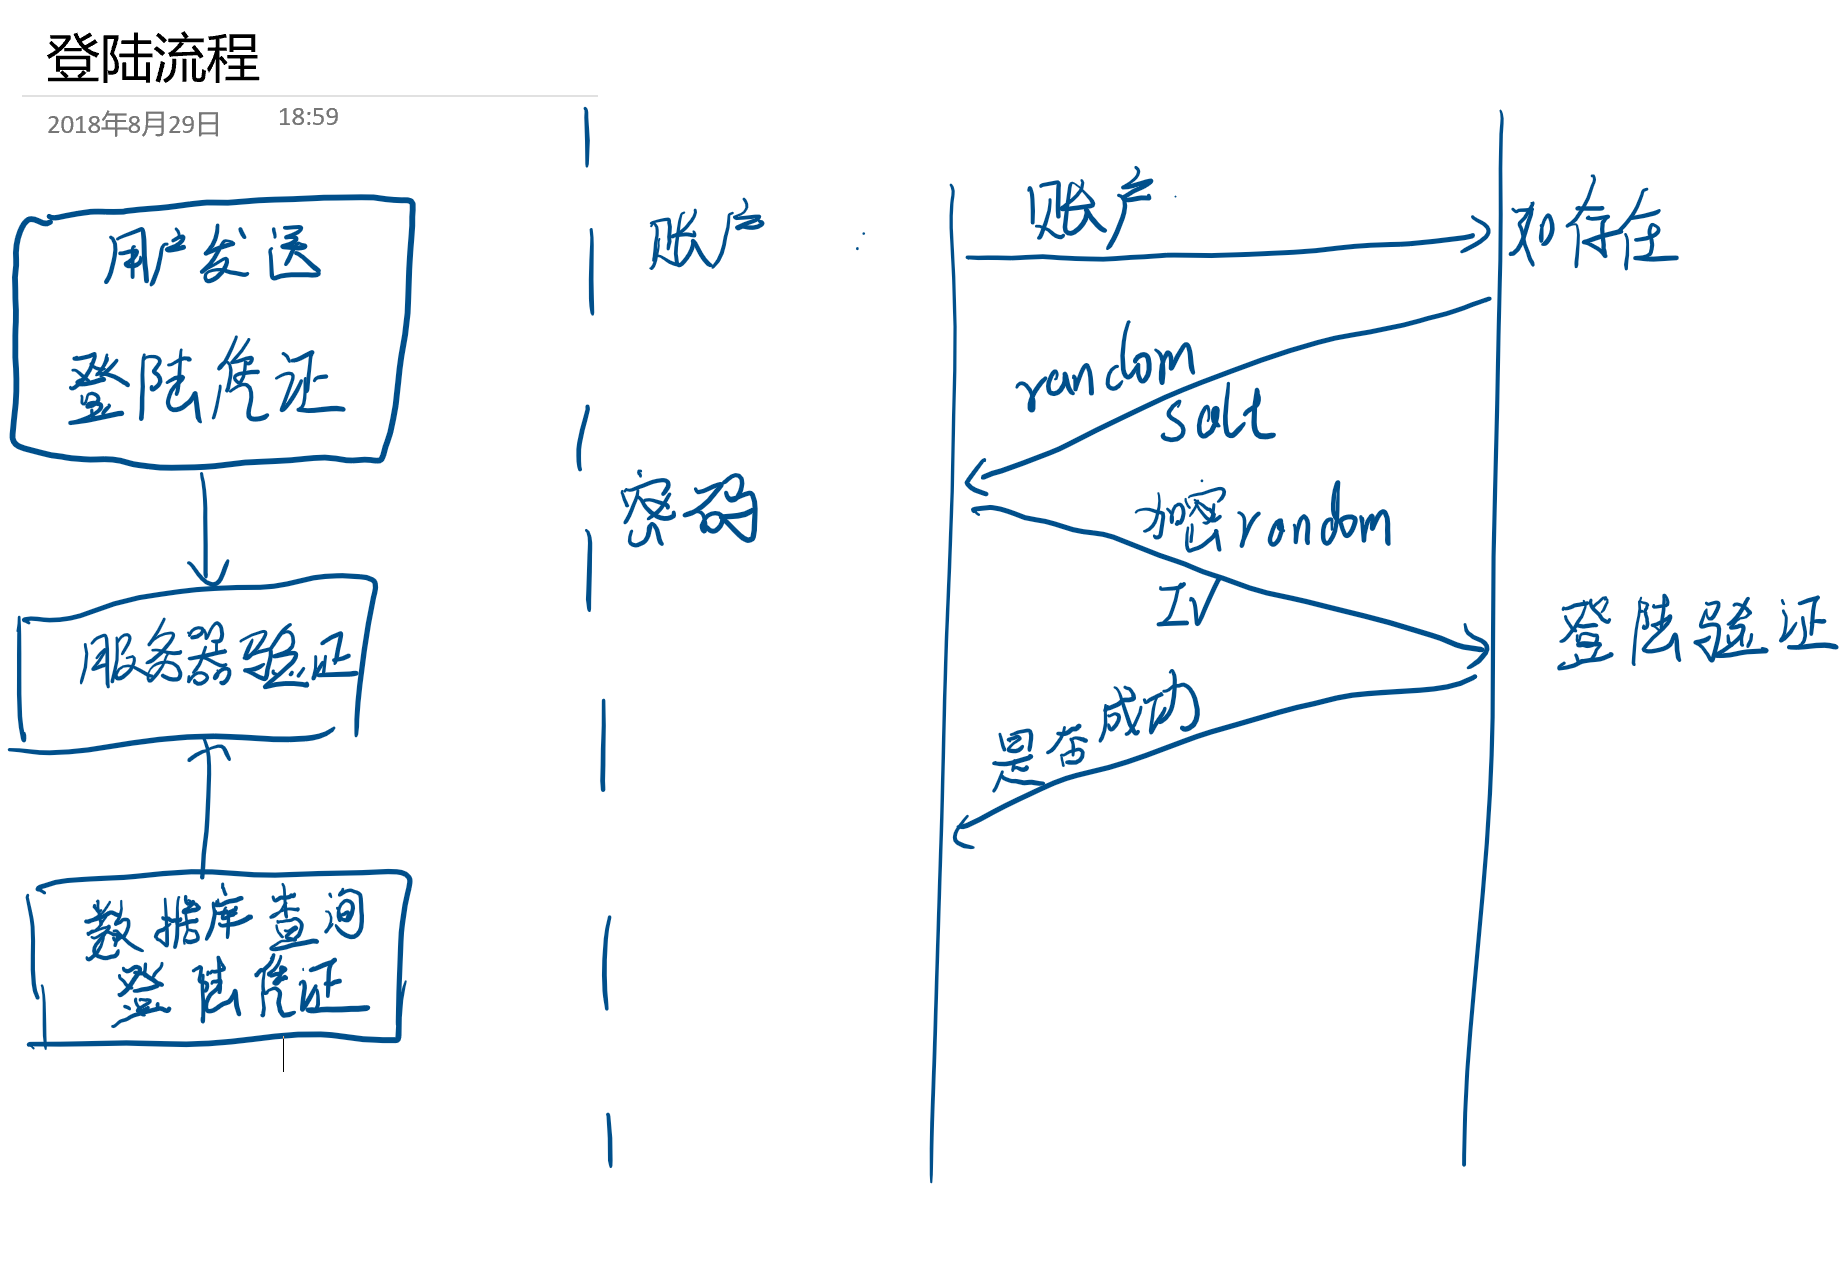 登陆流程
2018年8月29日 18:59
用户发送
登陆凭证
服务器验证
数据库查询
登陆凭证
账户
密码
账户
存在
random
salt
加密random
IV
登陆验证
是否成功